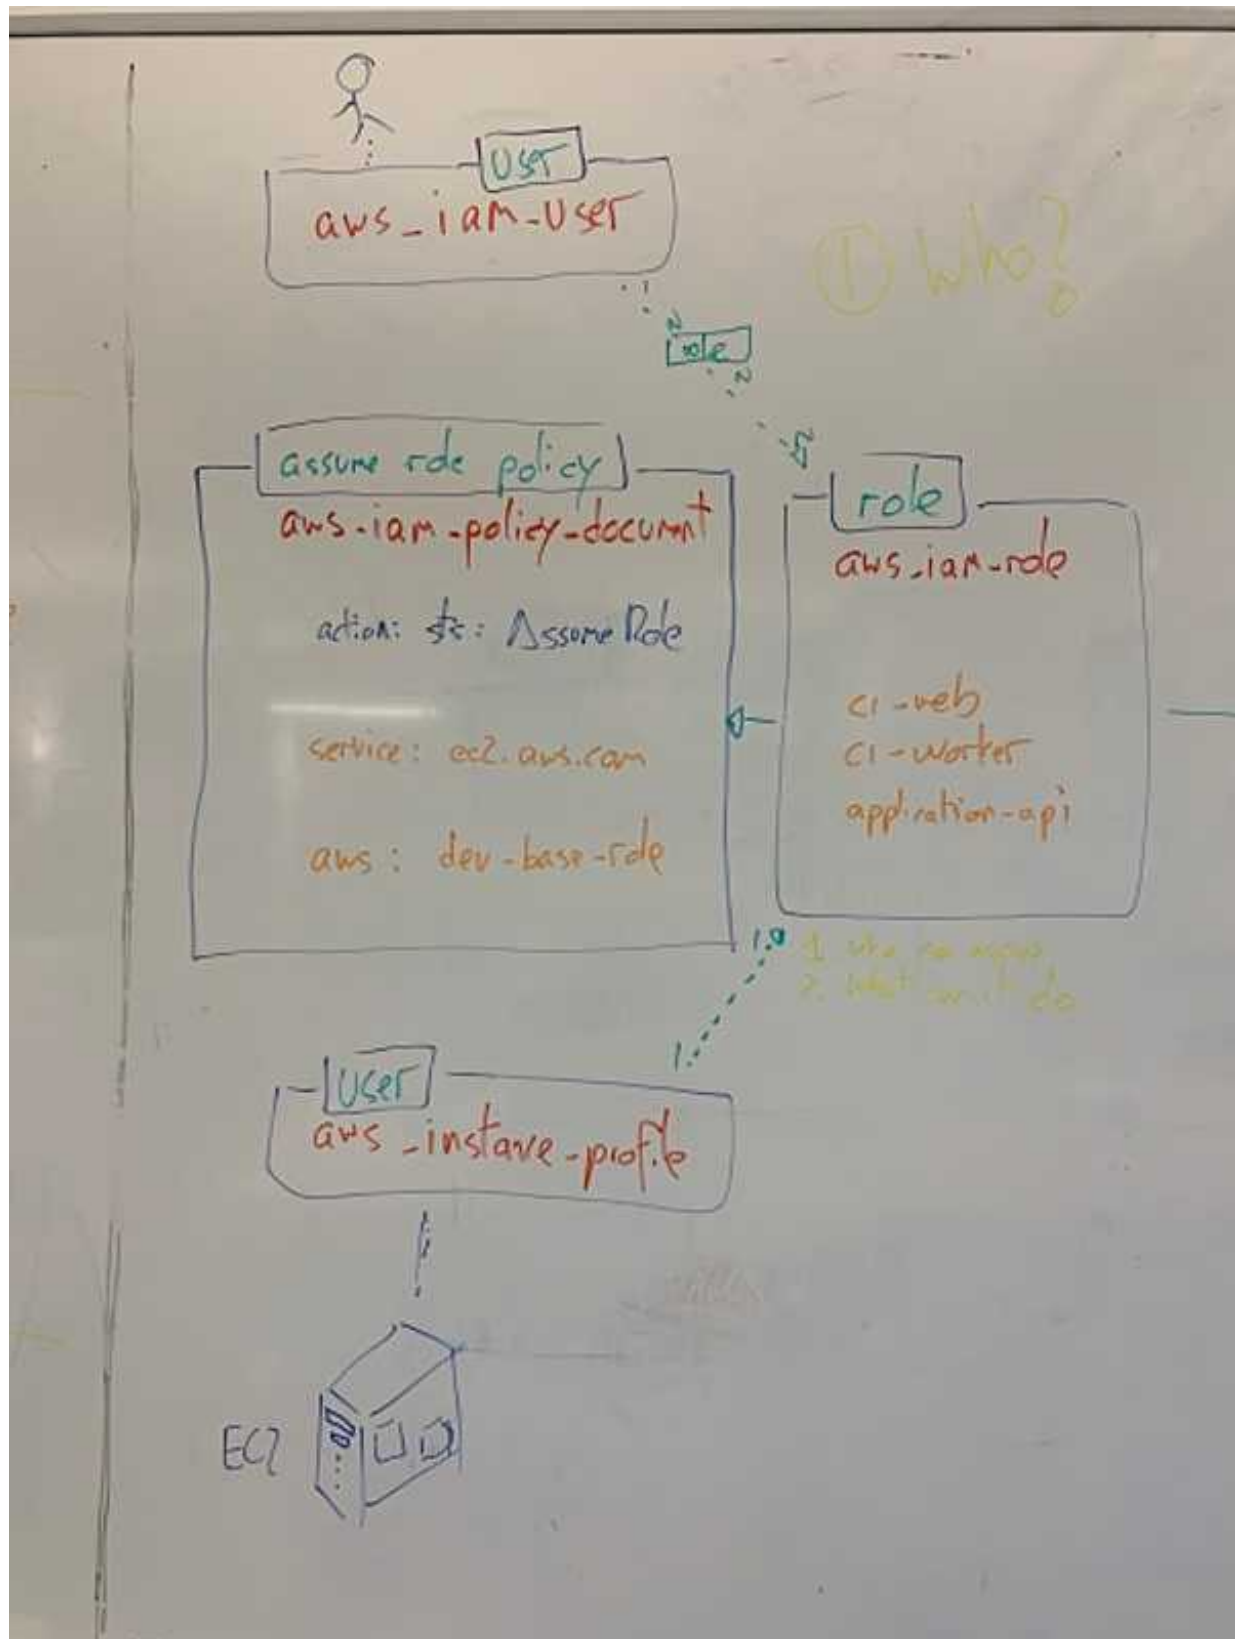 User
aws_iam-User
① Who?
role
assume role policy
aws-iam-policy-document
action: sts: AssumeRole
service: ec2.aws.com
aws: dev-base-role
role
aws_iam-role
ci-web
ci-worker
application-api
1.
1.
2. what can it do
User
aws_instance-profile
EC2